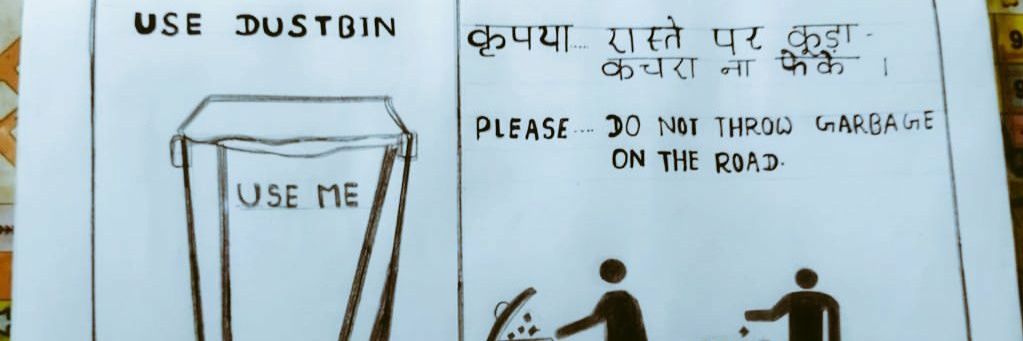 USE DUSTBIN
USE ME
कृपया.... रास्ते पर कूड़ा-
कचरा ना फेकें ।
PLEASE.... DO NOT THROW GARBAGE
ON THE ROAD.